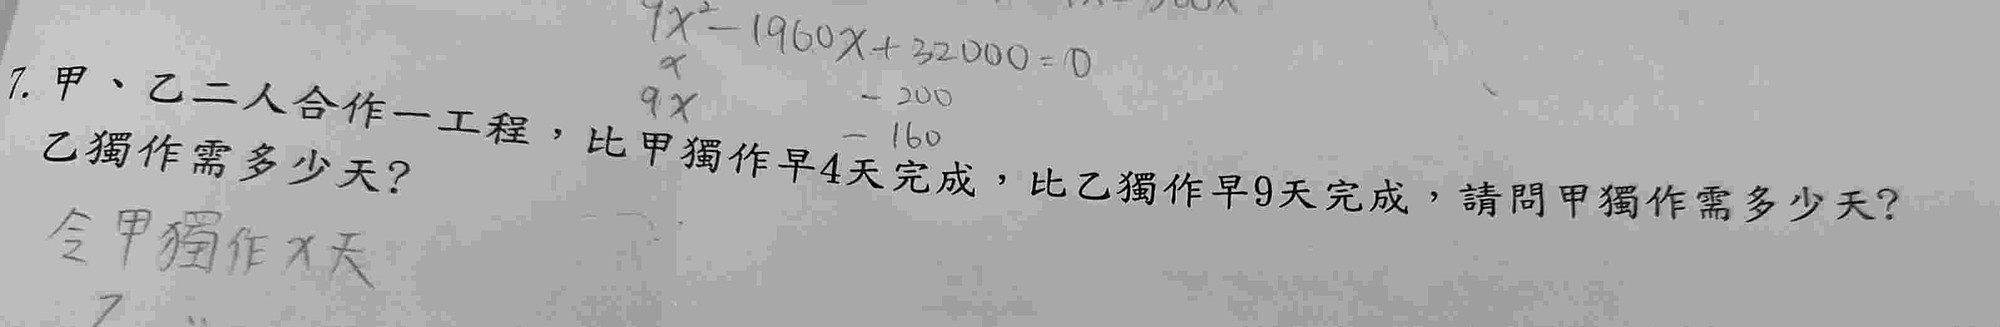 9x²-1960x+32000=0
x -200
9x -160
7. 甲、乙二人合作一工程，比甲獨作早4天完成，比乙獨作早9天完成，請問甲獨作需多少天?
乙獨作需多少天?
令甲獨作x天